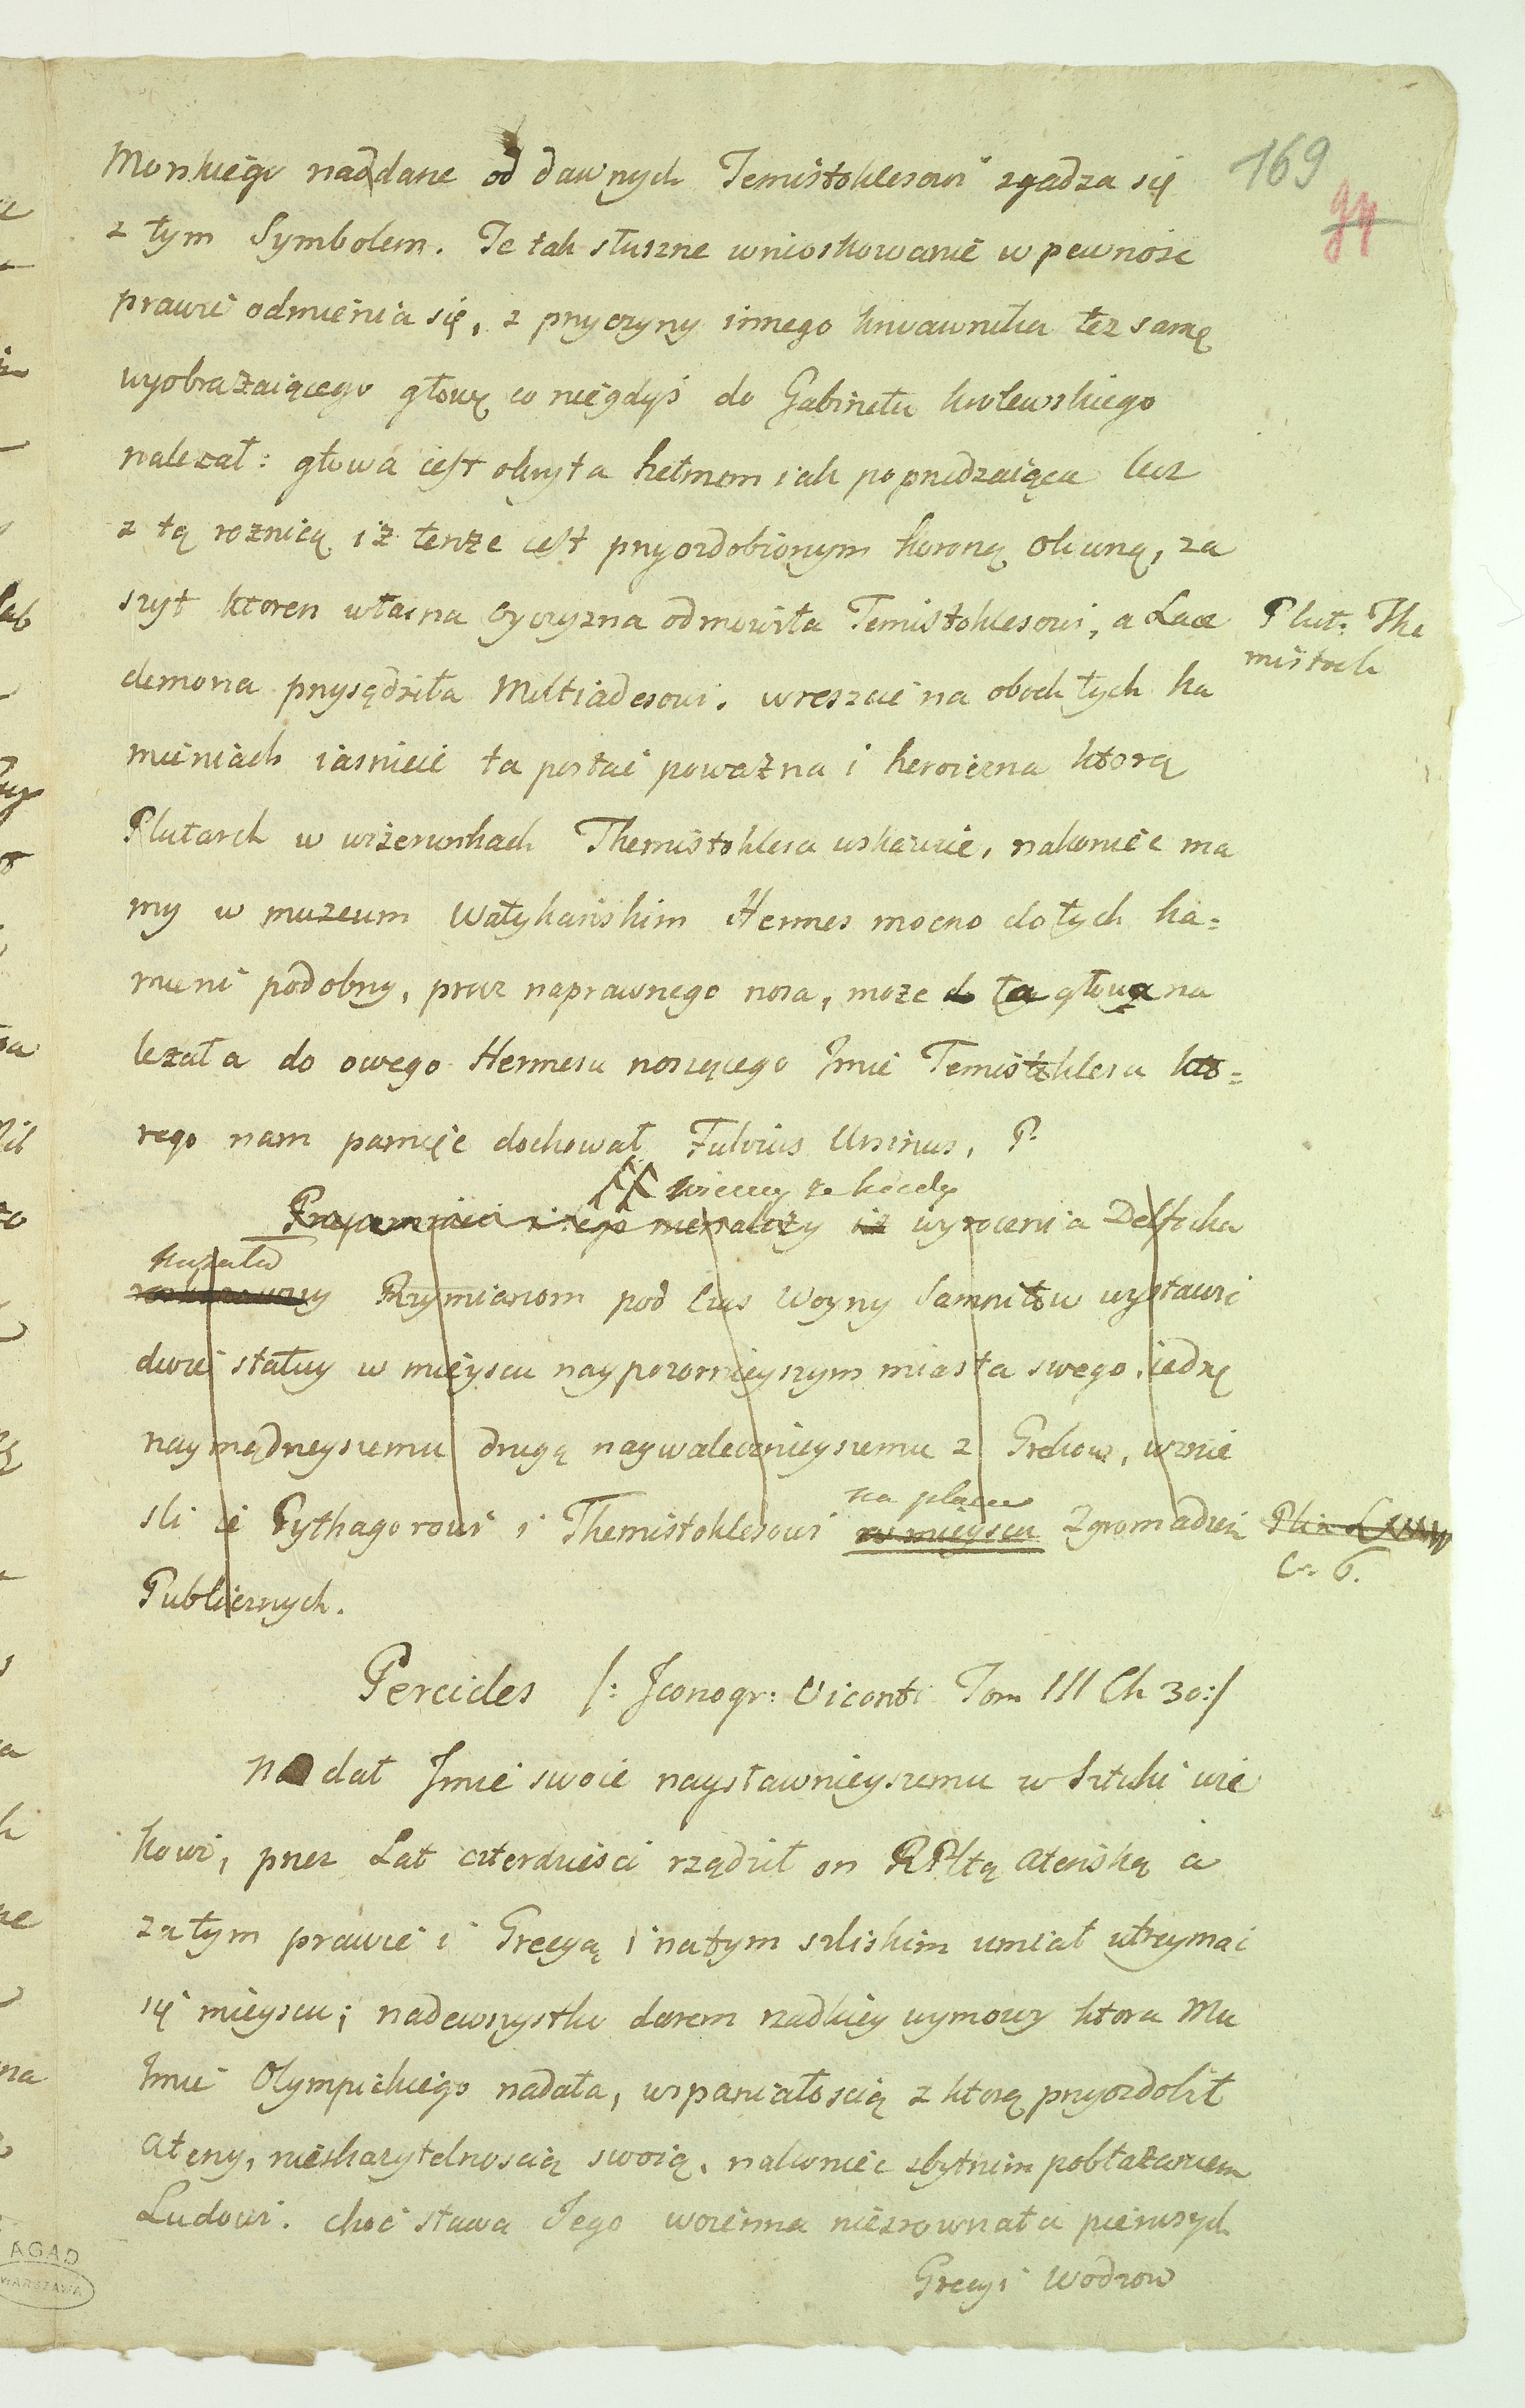 169
94
Morskiego naddane od dawnych Temistoklesowi zgadza się
z tym Symbolem. Te tak słuszne wnioskowanie w pewnosc
prawie odmienia się, z przyczyny innego krwawnika też samę
wyobrażaiącego głowę co niegdyś do Gabinetu krolewskiego
należał: głowa iest okryta hełmem iak poprzedzaiąca lecz
z tą roznicą iż tenże iest przyozdobionym koroną oliwną, za
szyt ktoren własna oyczyzna odmowiła Temistoklesowi, a Lace
Plut: The
mistock
demona przysądziła Miltiadesowi. wreszcie na oboch tych ka
mieniach iasnieie ta postać poważna i heroiczna ktorą
Plutarch w wizerunkach Themistoklesa wskazuie, nakoniec ma
my w muzeum Watykańskim Hermes mocno do tych ka=
mieni podobny, procz naprawnego nosa, może ta głowa na
leżała do owego Hermesu noszącego Jmie Temistoklesa kto=
rego nam pamięć dochował Fulvius Ursinus. P.
wiemy że kiedy
Przypomniec i tego nienależy iż wyrocznia Delficka
kazała
Rzymianom pod czas Woyny Samnitow wystawic
dwie statuy w mieyscu naypozornieyszym miasta swego, iednę
naymądrzeyszemu drugą naywalecznieyszemu z Grekow, wznie
sli ie Pythagorowi i Themistoklesowi w mieyscu Zgromadzeń
na placu
Plin L
C. 6.
Publicznych.
Percides /: Jconogr: Viconti Tom III Ch 30:/
nadał Jmie swoie naysławnieyszemu w Sztuki wie
kowi, przez Lat czterdziesci rządził on RPltą Ateńską a
zatym prawie i Grecyą i natym szliskim umiał utrzymać
się mieyscu; nadewszystko darem rzadkiey wymowy ktora Mu
Jmie Olympickiego nadała, wspaniałoscią z ktorą przyozdobił
Ateny, nieskazytelnoscią swoią, nakoniec zbytnim pobłażaniem
Ludowi. choć sława Jego woienna niezrownała pierwszych
Grecyi Wodzow
AGAD
WARSZAWA